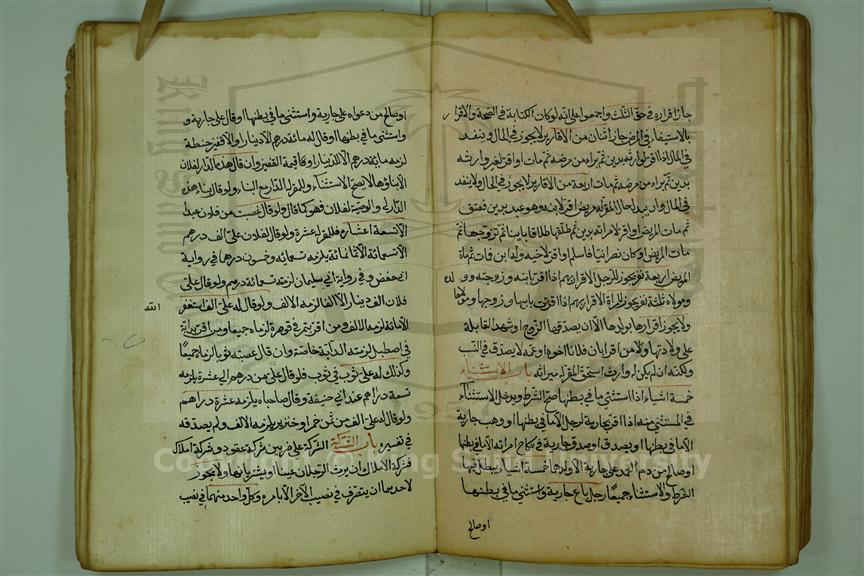 جاز اقراره في حق الثلث واجمعوا على انه لو كان الكتابة في الصحة والاقرار
بالاستيفاء في المرض جاز اثنان من الاقارير لا يجوز في الحال وينفد
في المال اذا اقر لوارثه بدين ثم براء من مرضه ثم مات او اقر لغير وارثه
بدين ثم براء من مرضه ثم مات اربعة من الاقارير لا يجوز في الحال ولا ينفد
في المال وان بدل حال المقر له مريض اقر لابنه وهو عبد بدين فعتق
ثم مات المريض او اقر لامراته بدين ثم طلقها طلاقا باينا ثم تزوجها ثم
مات المريض او كان نصرانيا فاسلم او اقر لاخيه وله ابن فان ثم مات
المريض اربعة نفر يجوز للرجل الاقرار بهم اذا اقر بابنه وزوجته وولده
ومولاه ثلثة نفر يجوز للمراة الاقرار بهم اذا اقرت بابيها وزوجها ومولاها
ولا يجوز اقرارها بولدها الا ان يصدقها الزوج او تشهد القابلة
على ولادتها ولا من اقر بان فلانا اخوه او عمه لا يصدق في النسب
ولكنه ان لم يكن له وارث استحق المقر له ميراثه باب الاستثناء
خمسة اشياء اذا استثنى ما في بطنها صح الشرط ويدخل الاستثناء
في المستثنى منه اذا اقر بجارية لرجل الا ما في بطنها او وهب جارية
الا ما في بطنها او يصدق او صدق جارية في نكاح امراته الا ما في بطنها
او صالح من دم العمد على جارية الا ولدها خمسة اشياء يبطل فيها
الشرط والاستثناء جميعا رجل باع جارية واستثنى ما في بطنها
او صالح
او صالح من دعواه على جارية واستثنى ما في بطنها او قال على جارية و
واستثنى ما في بطنها او قال له مائة درهم الا دينار او الا قفيز حنطة
لزمه مائة درهم الا الدينار او كا قيمة القفيز وان قال هذه الدار لفلان
الا بناؤها لا يصح الاستثناء وللمقر له الدار مع البناء ولو قال بناء هذه
الدار لي والعرصة لفلان فهو كما قال ولو قال غصبت من فلان عبدا
الا تسعة اعشاره فللمقر له عشرة ولو قال لفلان على الف درهم
الا تسمائة الا ثمانمائة يلزمه تسمائة وخمسون درهما في رواية
ابي حفص وفي رواية ابي سلمان لزمته تسمائة درهم ولو قال على
فلان الف دينار الا الفا لزمه الالف ولو قال له على الف استغفر الله
الا مائة لزمه الالف ومن اقر بتمر في قوصرة لزماه جميعا ومن اقر بدابة
في اصطبل لزمته الدابة خاصة وان قال غصبته ثوبا لزماه جميعا
وكذلك له على ثوب في ثوب فلو قال على من درهم الى عشرة يلزمه
تسعة دراهم عند ابي حنيفة وقال صاحباه يلزمه عشرة دراهم
ولو قال له على الف من ثمن خمر او خنزير يلزمه الالف ولم يصدقه
في تفسيره باب الشركة الشركة على ضربين شركة عقود وشركة املاك
فشركة الاملاك ان يرث الرجلان عينا او يشتريانها ولا يجوز
لاحدهما ان يتصرف في نصيب الآخر الا بامره وكل واحد منهما في نصيب